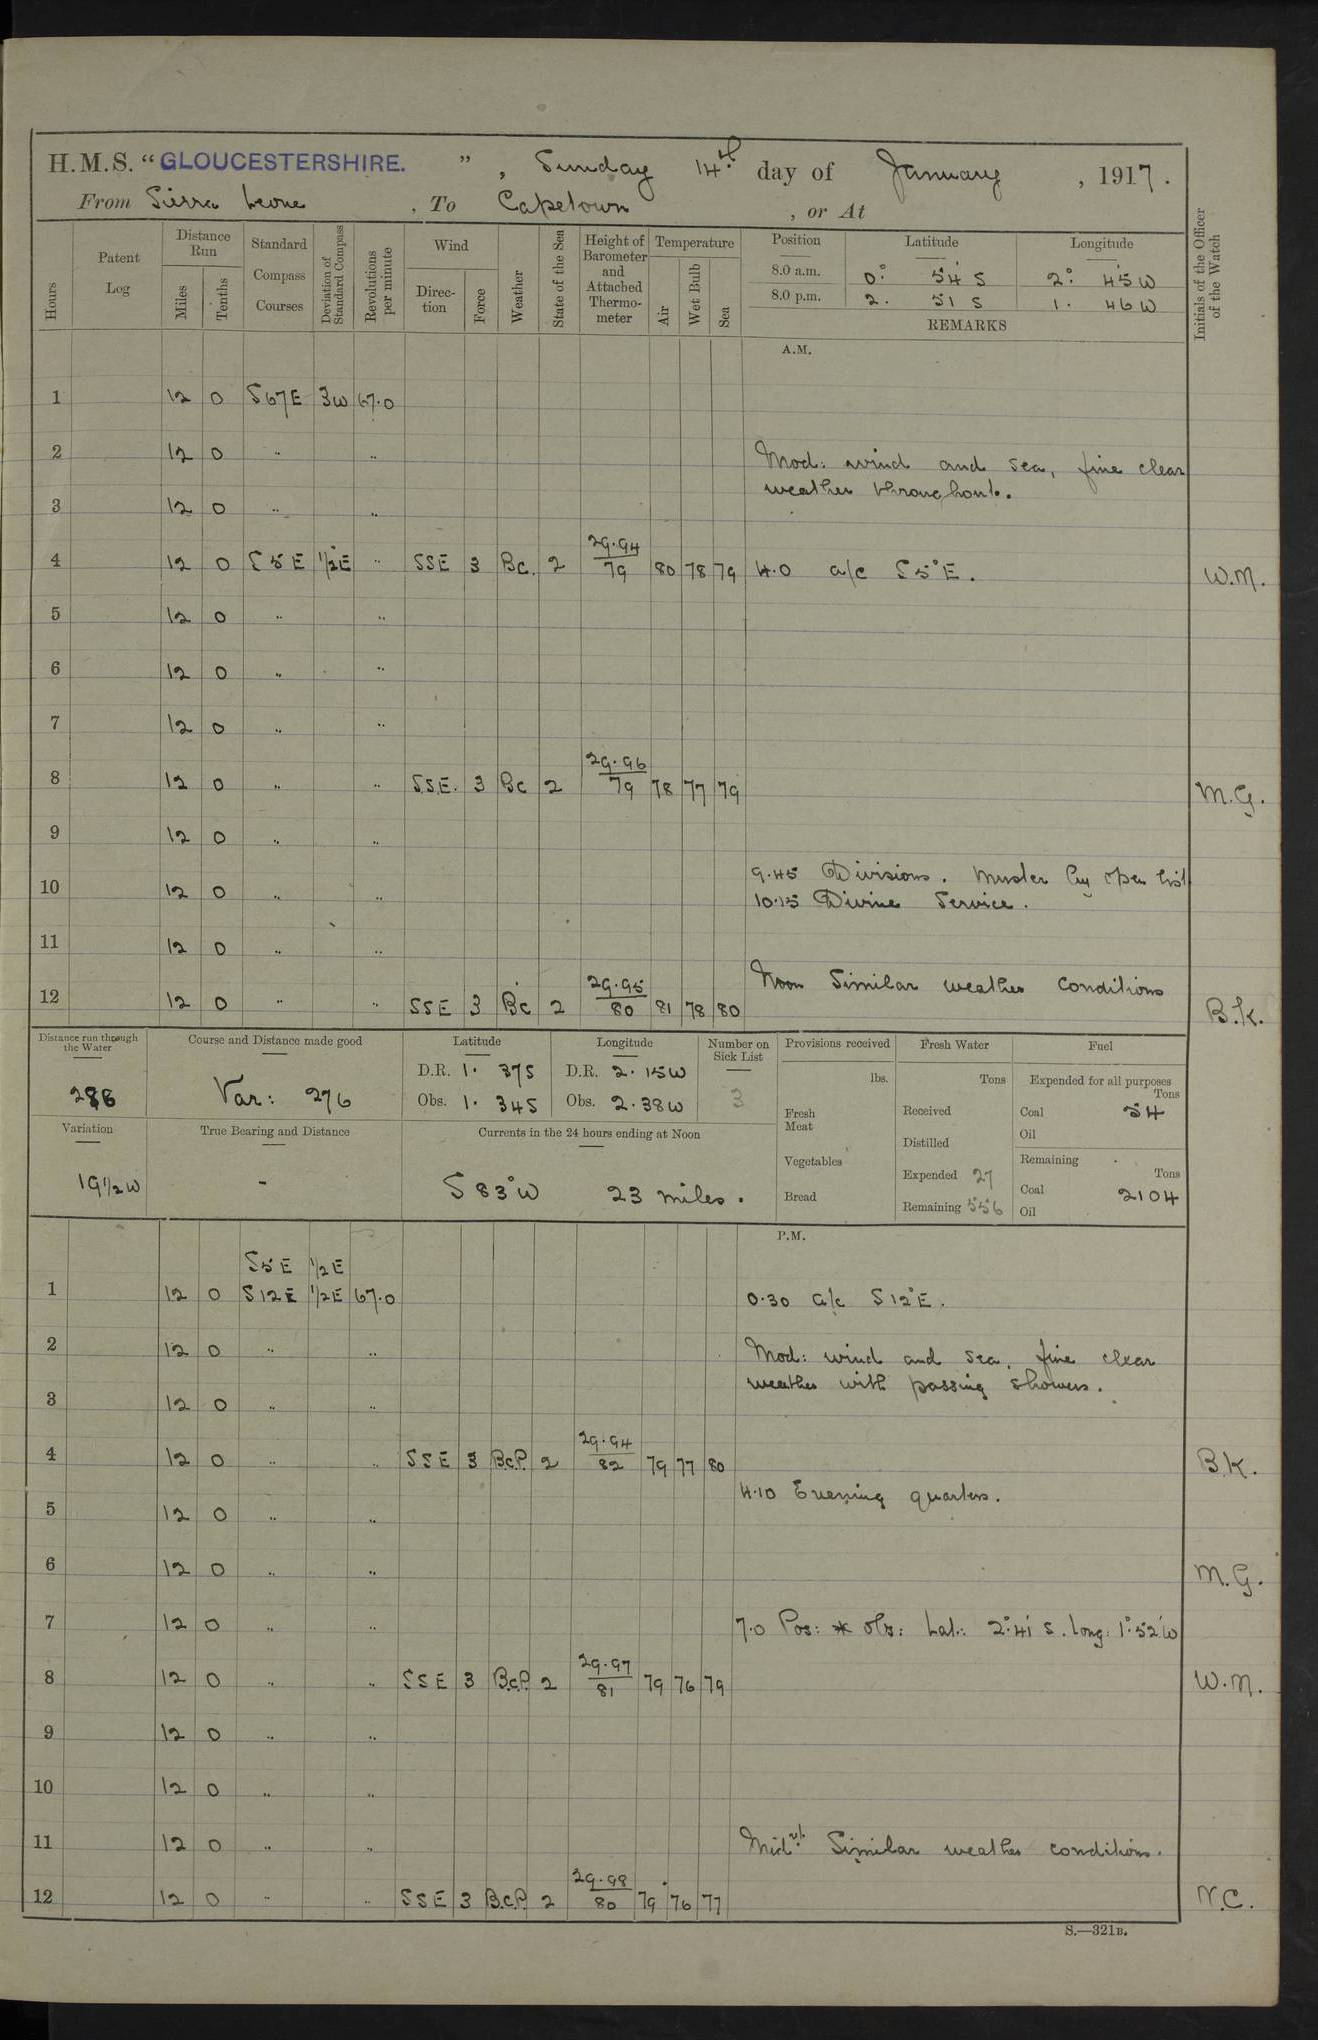 H.M.S. “GLOUCESTERSHIRE.”, Sunday 14th day of January, 1917.
From Sierra Leone, To Capetown, or At
Hours Patent Log Distance Run Miles Tenths Standard Compass Courses Deviation of Standard Compass Revolutions per minute Wind Direction Force Weather State of the Sea Height of Barometer and Attached Thermometer Temperature Air Wet Bulb Sea Position Latitude Longitude Initials of the Officer of the Watch
8.0 a.m. 0° 54' S 2° 45' W
8.0 p.m. 2. 51 S 1. 46 W
REMARKS
A.M.
1 12 0 S67E 3W 67.0
2 12 0 " " Mod: wind and sea, fine clear
weather throughout.
3 12 0 " "
4 12 0 S5E 1/2E " SSE 3 Bc. 2 29.94/79 80 78 79 4.0 a/c S5°E. W.M.
5 12 0 " "
6 12 0 " "
7 12 0 " "
8 12 0 " " S.S.E. 3 Bc 2 29.96/79 78 77 79 M.G.
9 12 0 " "
9.45 Divisions. Muster by open list
10 12 0 " " 10.15 Divine Service.
11 12 0 " "
Noon Similar weather conditions
12 12 0 " " SSE 3 Bc 2 29.95/80 81 78 80 B.K.
Distance run through the Water Course and Distance made good Latitude Longitude Number on Sick List Provisions received Fresh Water Fuel
D.R. 1. 37S D.R. 2. 15W lbs. Tons Expended for all purposes Tons
286 Var: 276 Obs. 1. 34S Obs. 2. 38W 3 Fresh Meat Received Coal 54
Oil
Variation True Bearing and Distance Currents in the 24 hours ending at Noon Distilled
Vegetables Expended 27 Remaining Tons
19½W - S 83°W 23 miles. Bread Remaining 556 Coal 2104
Oil
P.M.
S5E 1/2E
1 12 0 S12E 1/2E 67.0 0.30 a/c S12°E.
2 12 0 " " Mod: wind and sea, fine clear
weather with passing showers.
3 12 0 " "
4 12 0 " " SSE 3 Bc.P. 2 29.94/82 79 77 80 B.K.
4.10 Evening quarters.
5 12 0 " "
6 12 0 " " M.G.
7 12 0 " " 7.0 Pos: * Obs: Lat: 2°.41' S. Long: 1°.52'W
8 12 0 " " SSE 3 B.c.P. 2 29.97/81 79 76 79 W.M.
9 12 0 " "
10 12 0 " "
11 12 0 " " Midnt. Similar weather conditions.
12 12 0 " " SSE 3 B.c.P. 2 29.98/80 79 76 77 N.C.
S.—321B.